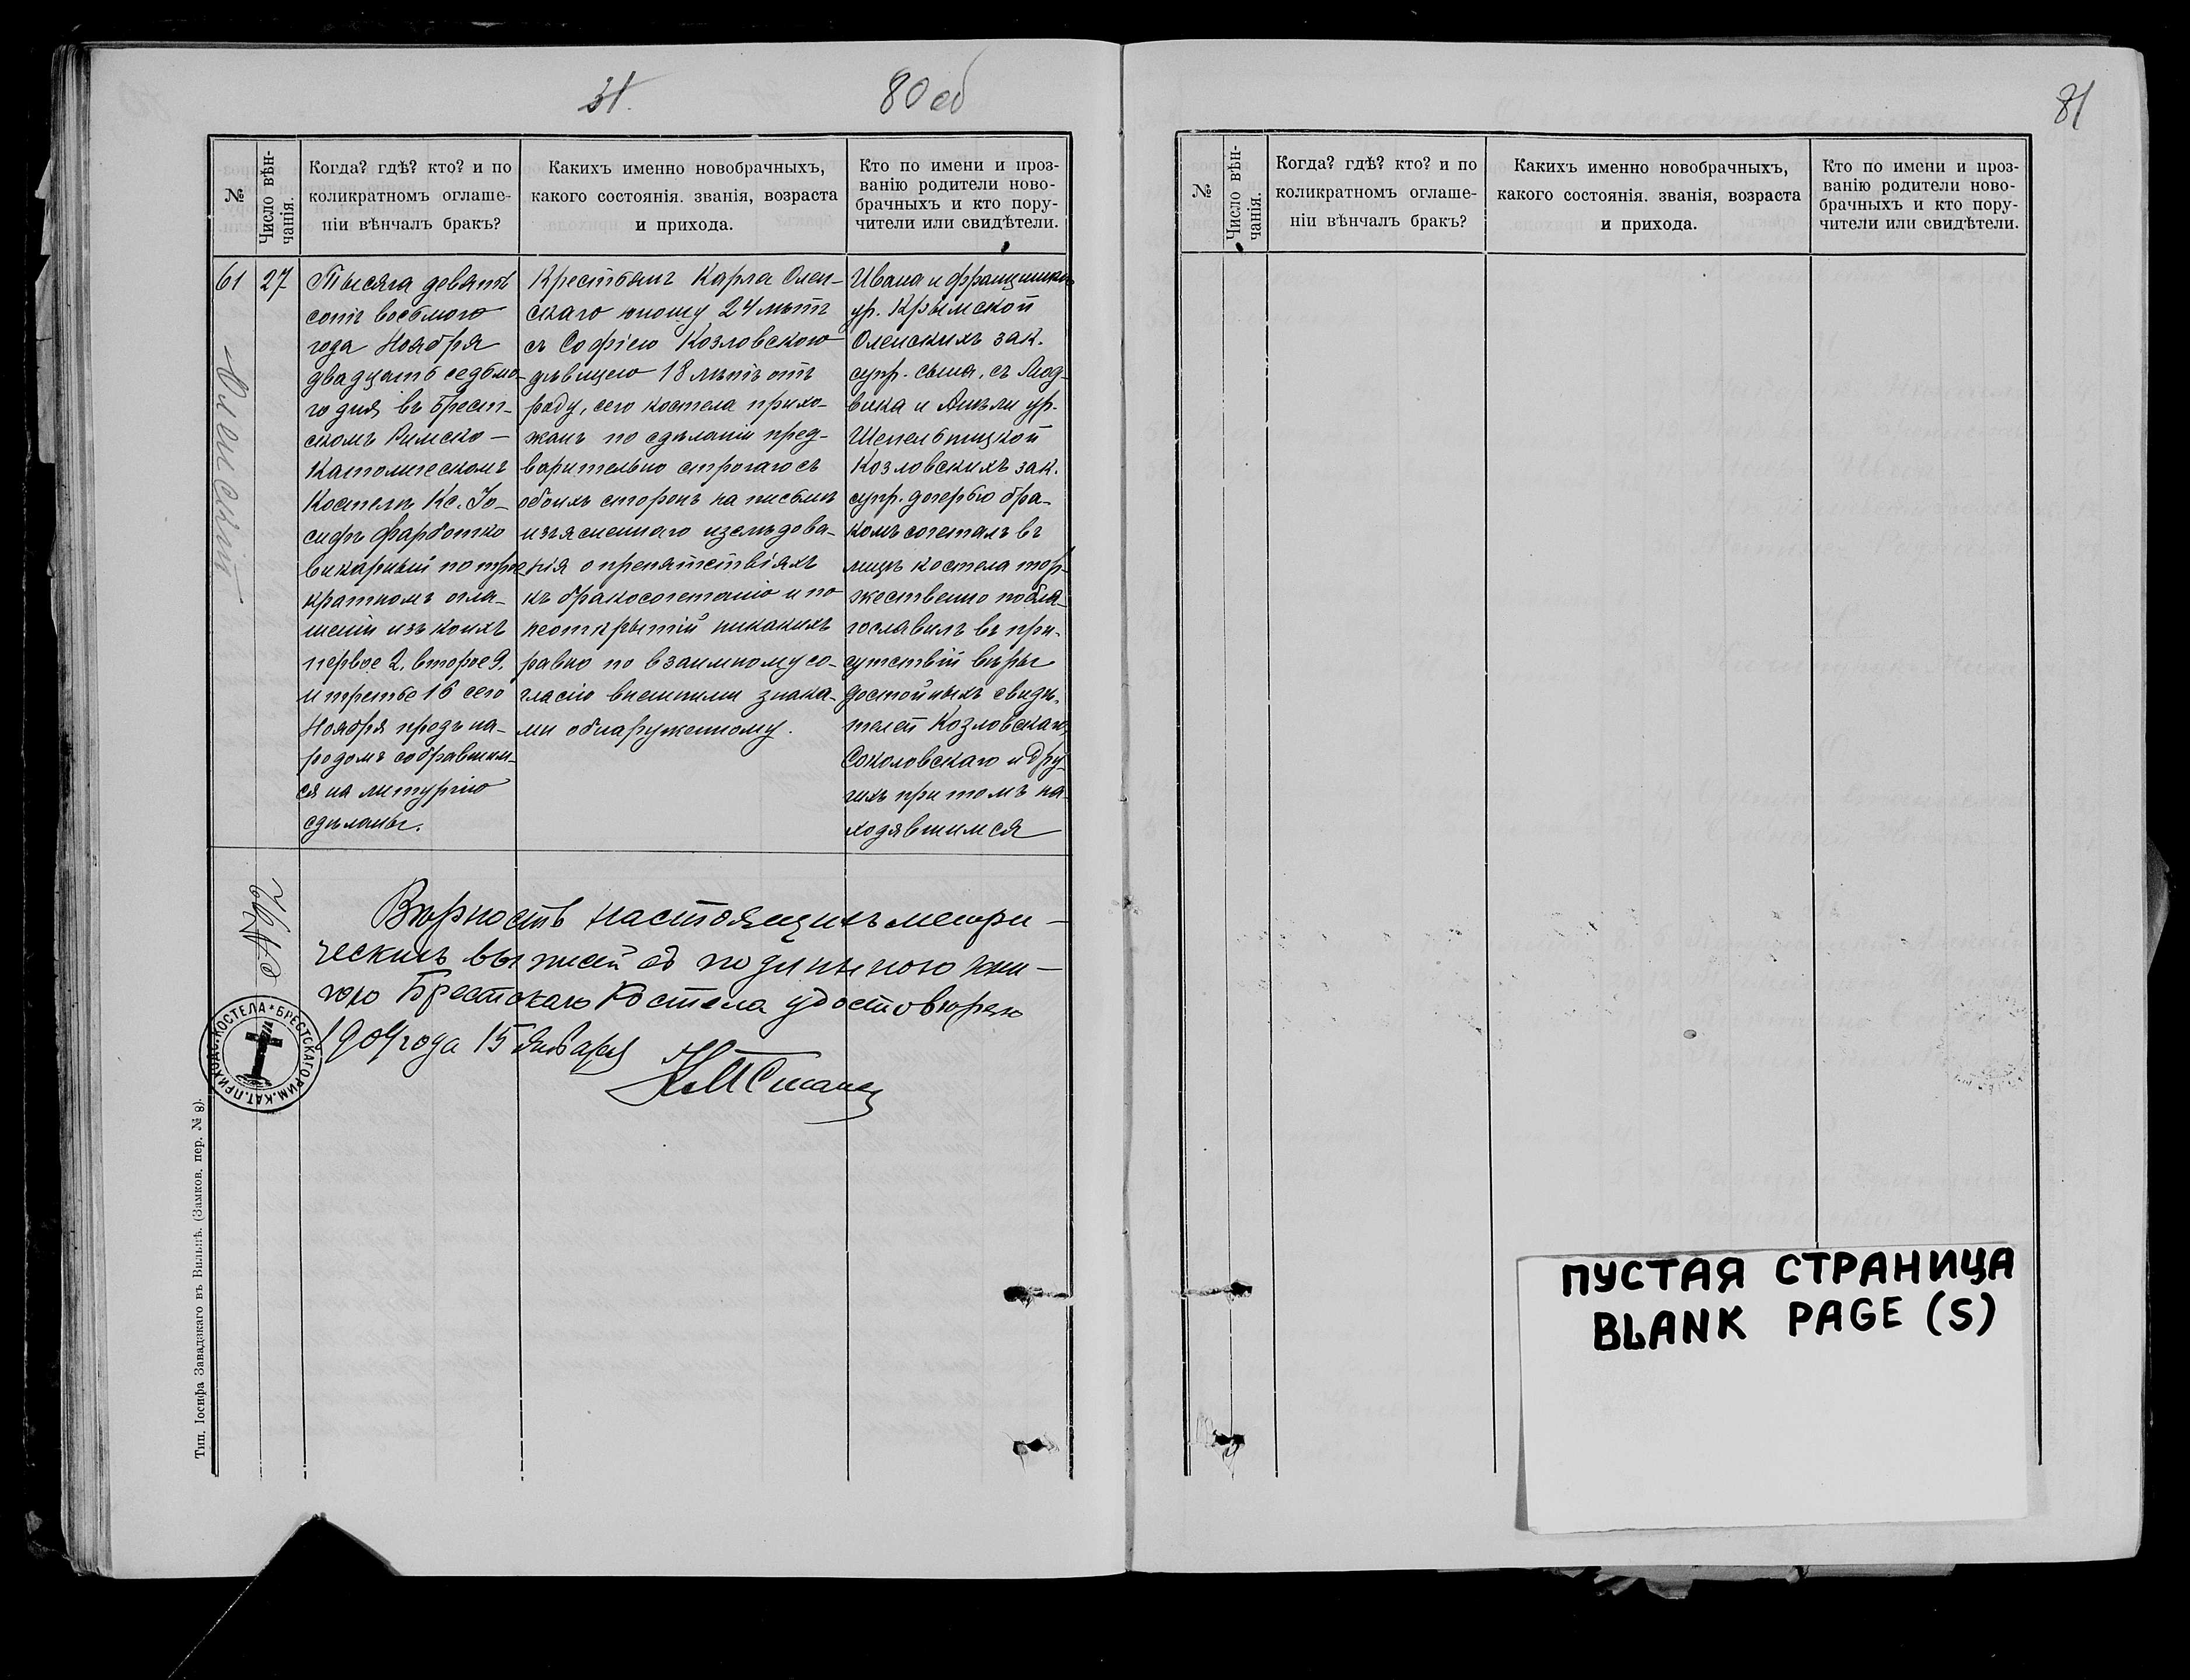 31.
80 об
№
Число вѣн-
чанія.
Когда? гдѣ? кто? и по
коликратномъ оглаше-
ніи вѣнчалъ бракъ?
Какихъ именно новобрачныхъ,
какого состоянія. званія, возраста
и прихода.
Кто по имени и проз-
ванію родители ново-
брачныхъ и кто пору-
чители или свидѣтели.
61
27
Олескій
Тысяча девять
сотъ восьмого
года Ноября
двадцать седьмо-
го дня въ Брест-
скомъ Римско-
Католическомъ
Костелѣ Кс. Іо-
сифъ Фарботко
викарный по трое
кратномъ огла-
шеніи изъ коихъ
первое 2, второе 9.
и третье 16 сего
Ноября предъ на-
родомъ собравшим-
ся на литургію
сдѣланы.
Крестьянъ Карла Олен-
скаго юношу 24 лѣтъ
съ Софіею Козловскою
дѣвицею 18 лѣтъ отъ
роду, сего костела прихо-
жанъ по сдѣланіи пред-
варительно строгаго съ
обоихъ сторонъ на письмѣ
изъясненнаго изслѣдова-
нія о препятствіяхъ
къ бракосочетанію и по
неоткрытіи никакихъ
равно по взаимному со-
гласію внешними знака-
ми обнаруженному.
Ивана и Францишки
ур. Крымской
Оленскихъ зак.
супр. сына, съ Люд-
вика и Анѣли ур.
Шепельтицкой
Козловскихъ зак.
супр. дочерью бра-
комъ сочеталъ въ
лицѣ костела тор-
жественно побла-
гославилъ въ при-
сутствіи вѣры
достойныхъ свидѣ-
телей Козловскаго,
Соколовскаго и дру-
гихъ при томъ на-
ходявшимся
Вѣрность настоящихъ метри-
ческихъ выписей съ подлинною кни-
гою Брестскаго Костела удостовѣряю
1909 года 15 Января
БРЕСТСКАГО РИМ. КАТ. ПРИХОДС. КОСТЕЛА
Тип. Іосифа Завадзкаго въ Вильнѣ. (Замков. пер. № 8).
81
№
Число вѣн-
чанія.
Когда? гдѣ? кто? и по
коликратномъ оглаше-
ніи вѣнчалъ бракъ?
Какихъ именно новобрачныхъ,
какого состоянія. званія, возраста
и прихода.
Кто по имени и проз-
ванію родители ново-
брачныхъ и кто пору-
чители или свидѣтели.
ПУСТАЯ СТРАНИЦА
BLANK PAGE (S)